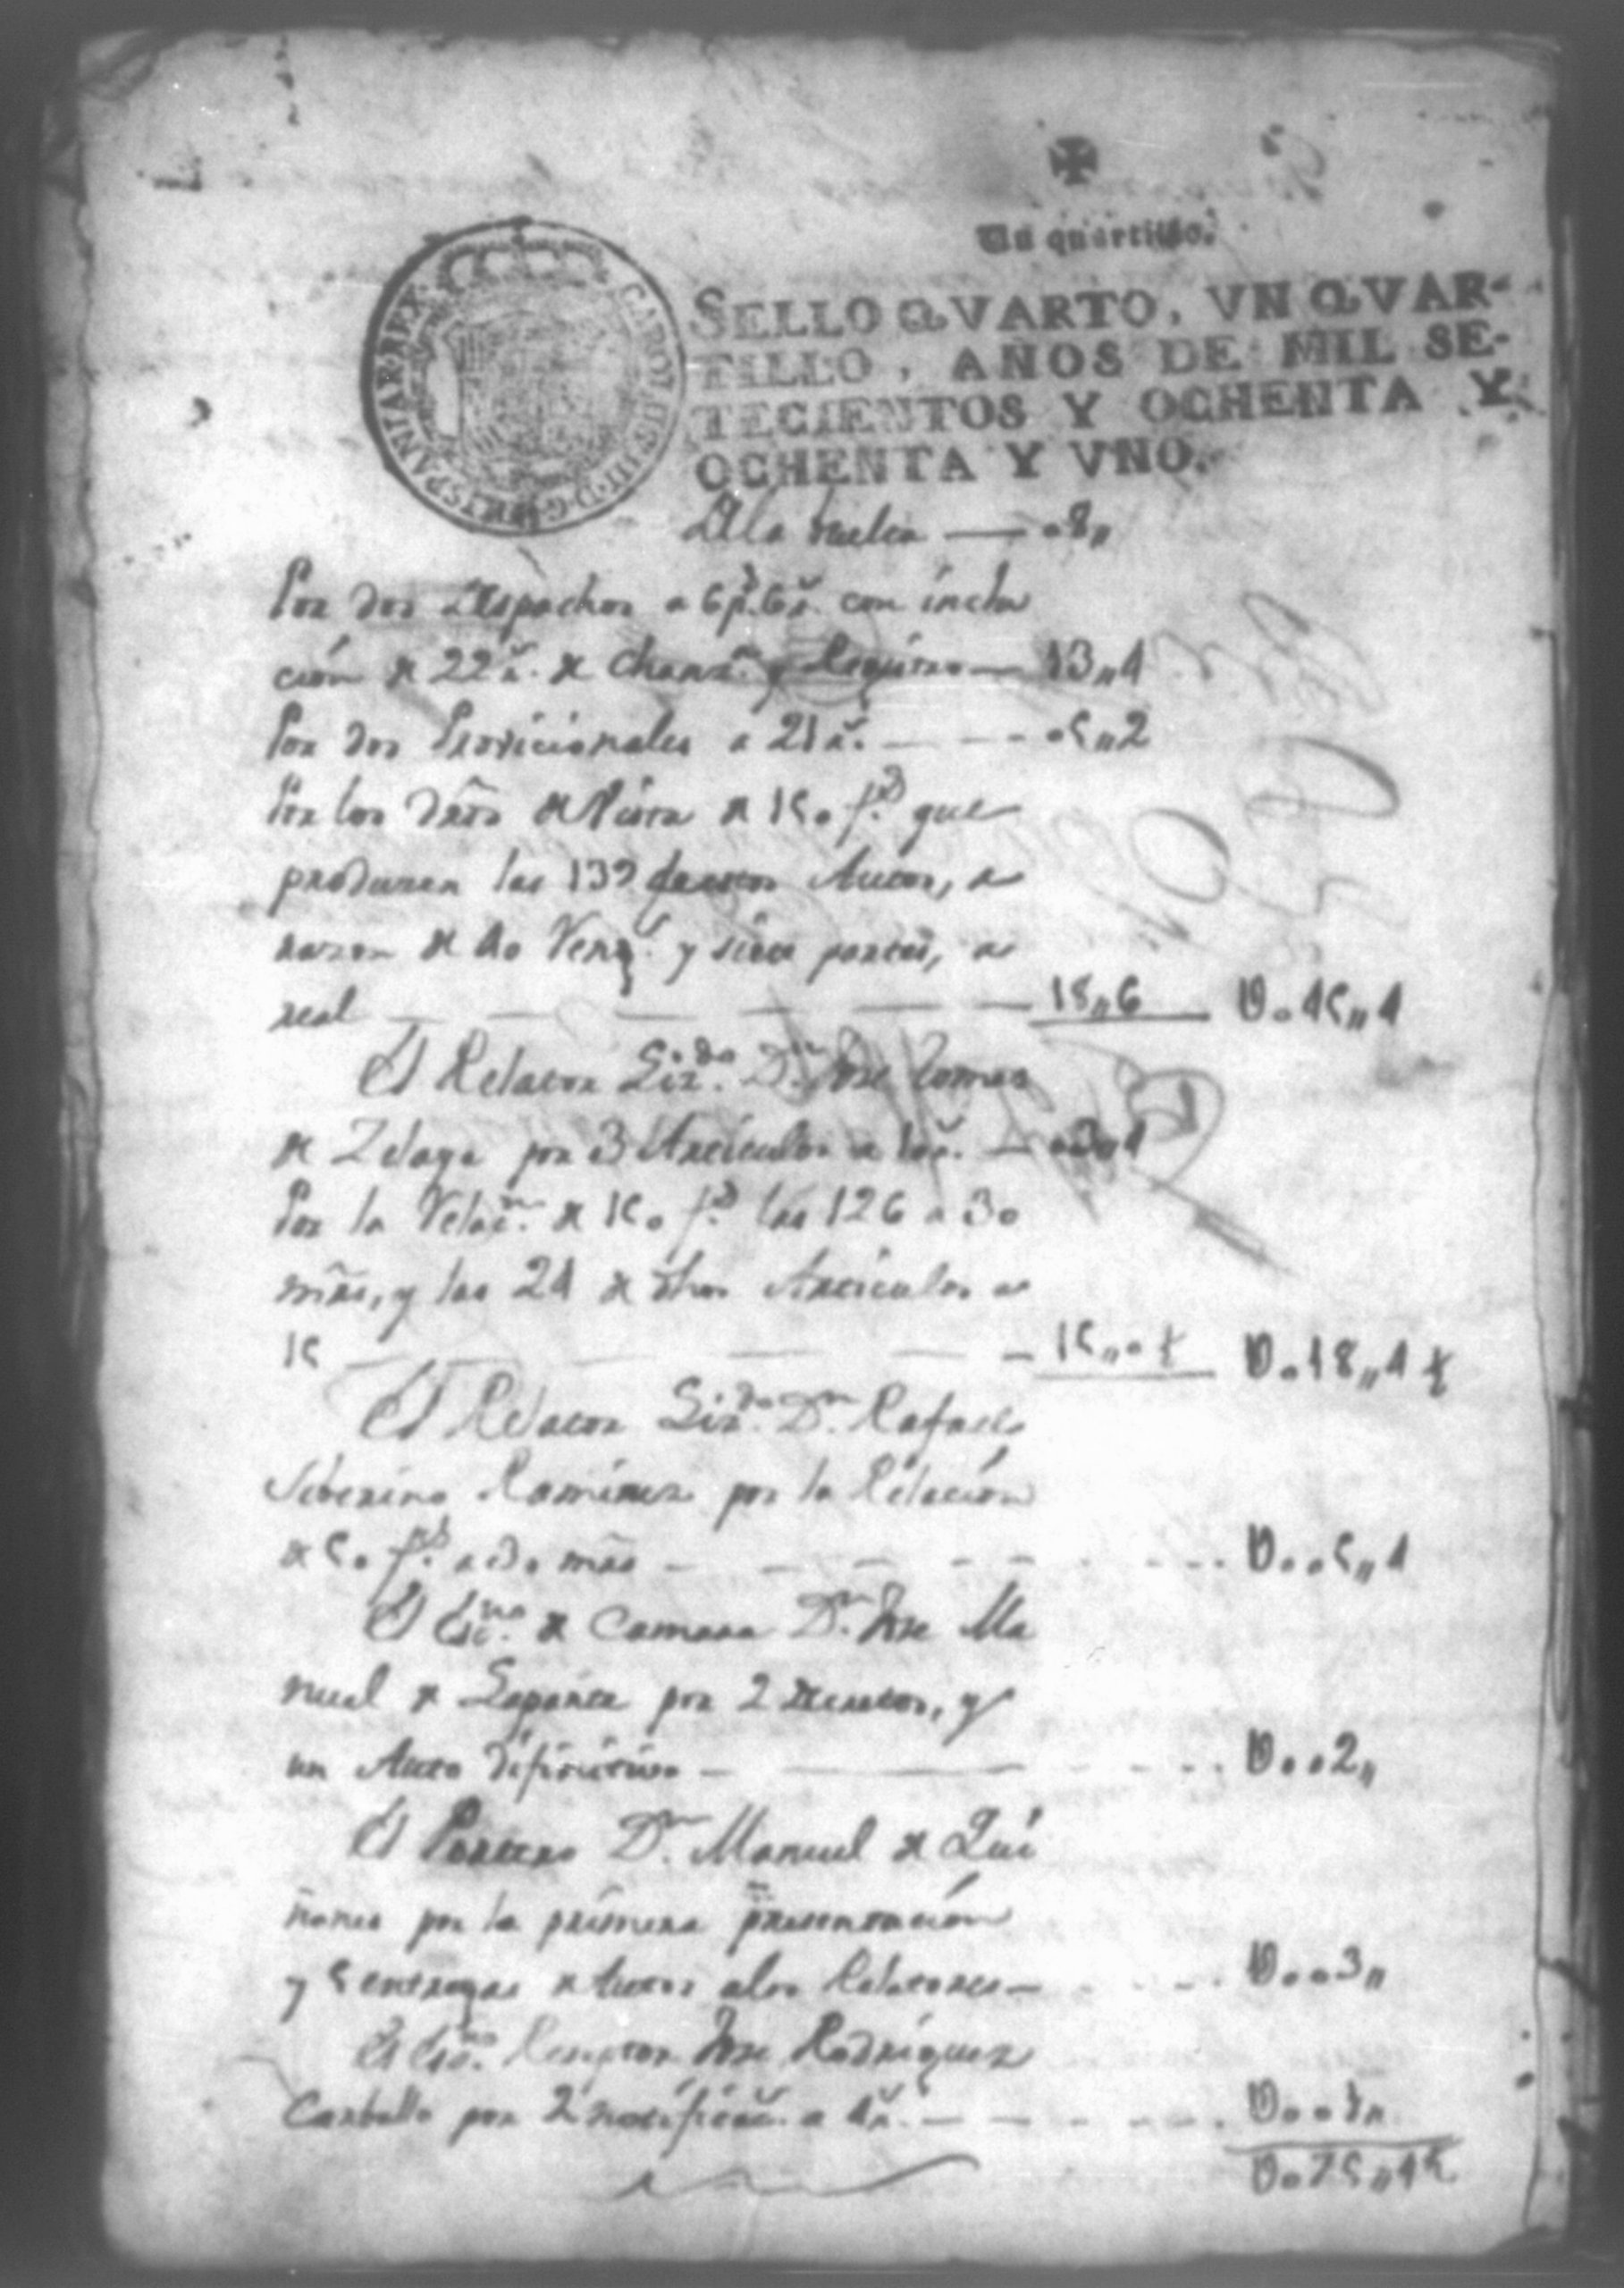 Un quartillo.
CAROLUS III D.G. HISPANIAR. REX
SELLO QVARTO, VN QVAR-
TILLO, AÑOS DE MIL SE-
TECIENTOS Y OCHENTA Y
OCHENTA Y VNO.
De la vuelta — 08,,
Por dos Despachos a 6p.s 6r.s con inclu
cion de 22r.s de Chanz.a y Registro — 13,,4
Por dos Provicionales a 21r.s — 05,,2
Por los dr̃os de Vista de 150 f.s que
produxeron los 139 de Autos, a
razon de 40 y siete partes, a
real — 18,,6 — U.045,,4
El Relator Liz.do D.n Jose Tomas
de Zelaya por 3 Articulos a r.s — 03,,1
Por la Relac.n de 150 f.s las 126 a 30
mr̃s, y las 24 de otros Articulos a
15 — 15,,0 ½ — U.018,,4 ½
El Relator Liz.do D.n Rafael
Seberino Ramirez por la Relacion
de 50 f.s a 30 mr̃s — U.005,,4
El Esc.no de Camara D.n Jose Ma
nuel de Laparte por 2 Decretos, y
un Auto difinitivo — U.002,,
El Portero D.n Manuel de Qui
ñones por la primera presentacion
y 5 entregas de Autos a los Relatores — U.003,,
El Esc.no Receptor Jose Rodriguez
Carballo por 2 notificac.s a 4r.s — U.001,,
U.075,,4½